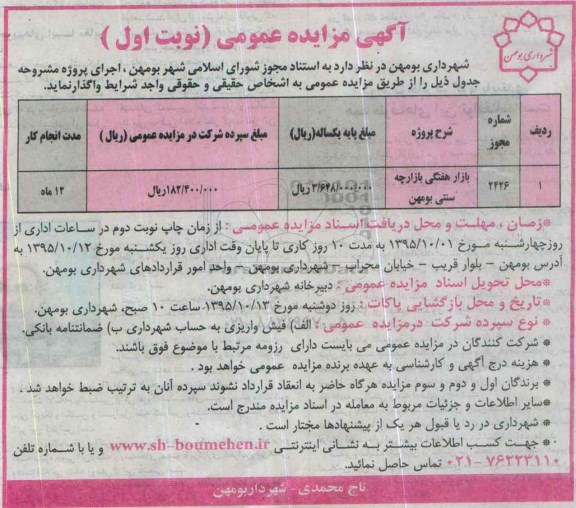 آگهی مزایده عمومی (نوبت اول)
شهرداری بومهن
شهرداری بومهن در نظر دارد به استناد مجوز شورای اسلامی شهر بومهن ، اجرای پروژه مشروحه
جدول ذیل را از طریق مزایده عمومی به اشخاص حقیقی و حقوقی واجد شرایط واگذار نماید.
ردیف شماره مجوز شرح پروژه مبلغ پایه یکساله(ریال) مبلغ سپرده شرکت در مزایده عمومی (ریال) مدت انجام کار
۱ ۲۴۲۶ بازار هفتگی بازارچه سنتی بومهن ۳/۶۴۸/۰۰۰/۰۰۰ ریال ۱۸۲/۴۰۰/۰۰۰ریال ۱۲ ماه
*زمان ، مهلت و محل دریافت اسناد مزایده عمومی : از زمان چاپ نوبت دوم در ساعات اداری از
روز چهارشنبه مورخ ۱۳۹۵/۱۰/۰۱ به مدت ۱۰ روز کاری تا پایان وقت اداری روز یکشنبه مورخ ۱۳۹۵/۱۰/۱۲ به
آدرس بومهن – بلوار قریب – خیابان محراب – شهرداری بومهن – واحد امور قراردادهای شهرداری بومهن.
*محل تحویل اسناد مزایده عمومی : دبیرخانه شهرداری بومهن.
*تاریخ و محل بازگشایی پاکات : روز دوشنبه مورخ ۱۳۹۵/۱۰/۱۳ ساعت ۱۰ صبح، شهرداری بومهن.
* نوع سپرده شرکت در مزایده عمومی : الف) فیش واریزی به حساب شهرداری ب) ضمانتنامه بانکی.
* شرکت کنندگان در مزایده عمومی می بایست دارای رزومه مرتبط با موضوع فوق باشند.
* هزینه درج آگهی و کارشناسی به عهده برنده مزایده عمومی خواهد بود .
* برندگان اول و دوم و سوم مزایده هرگاه حاضر به انعقاد قرارداد نشوند سپرده آنان به ترتیب ضبط خواهد شد .
*سایر اطلاعات و جزئیات مربوط به معامله در اسناد مزایده مندرج است.
* شهرداری در رد یا قبول هر یک از پیشنهادها مختار است .
* جهت کسب اطلاعات بیشتر به نشانی اینترنتی www.sh-boumehen.ir و یا با شماره تلفن
۰۲۱-۷۶۲۲۳۱۱۰ تماس حاصل نمائید.
تاج محمدی - شهردار بومهن